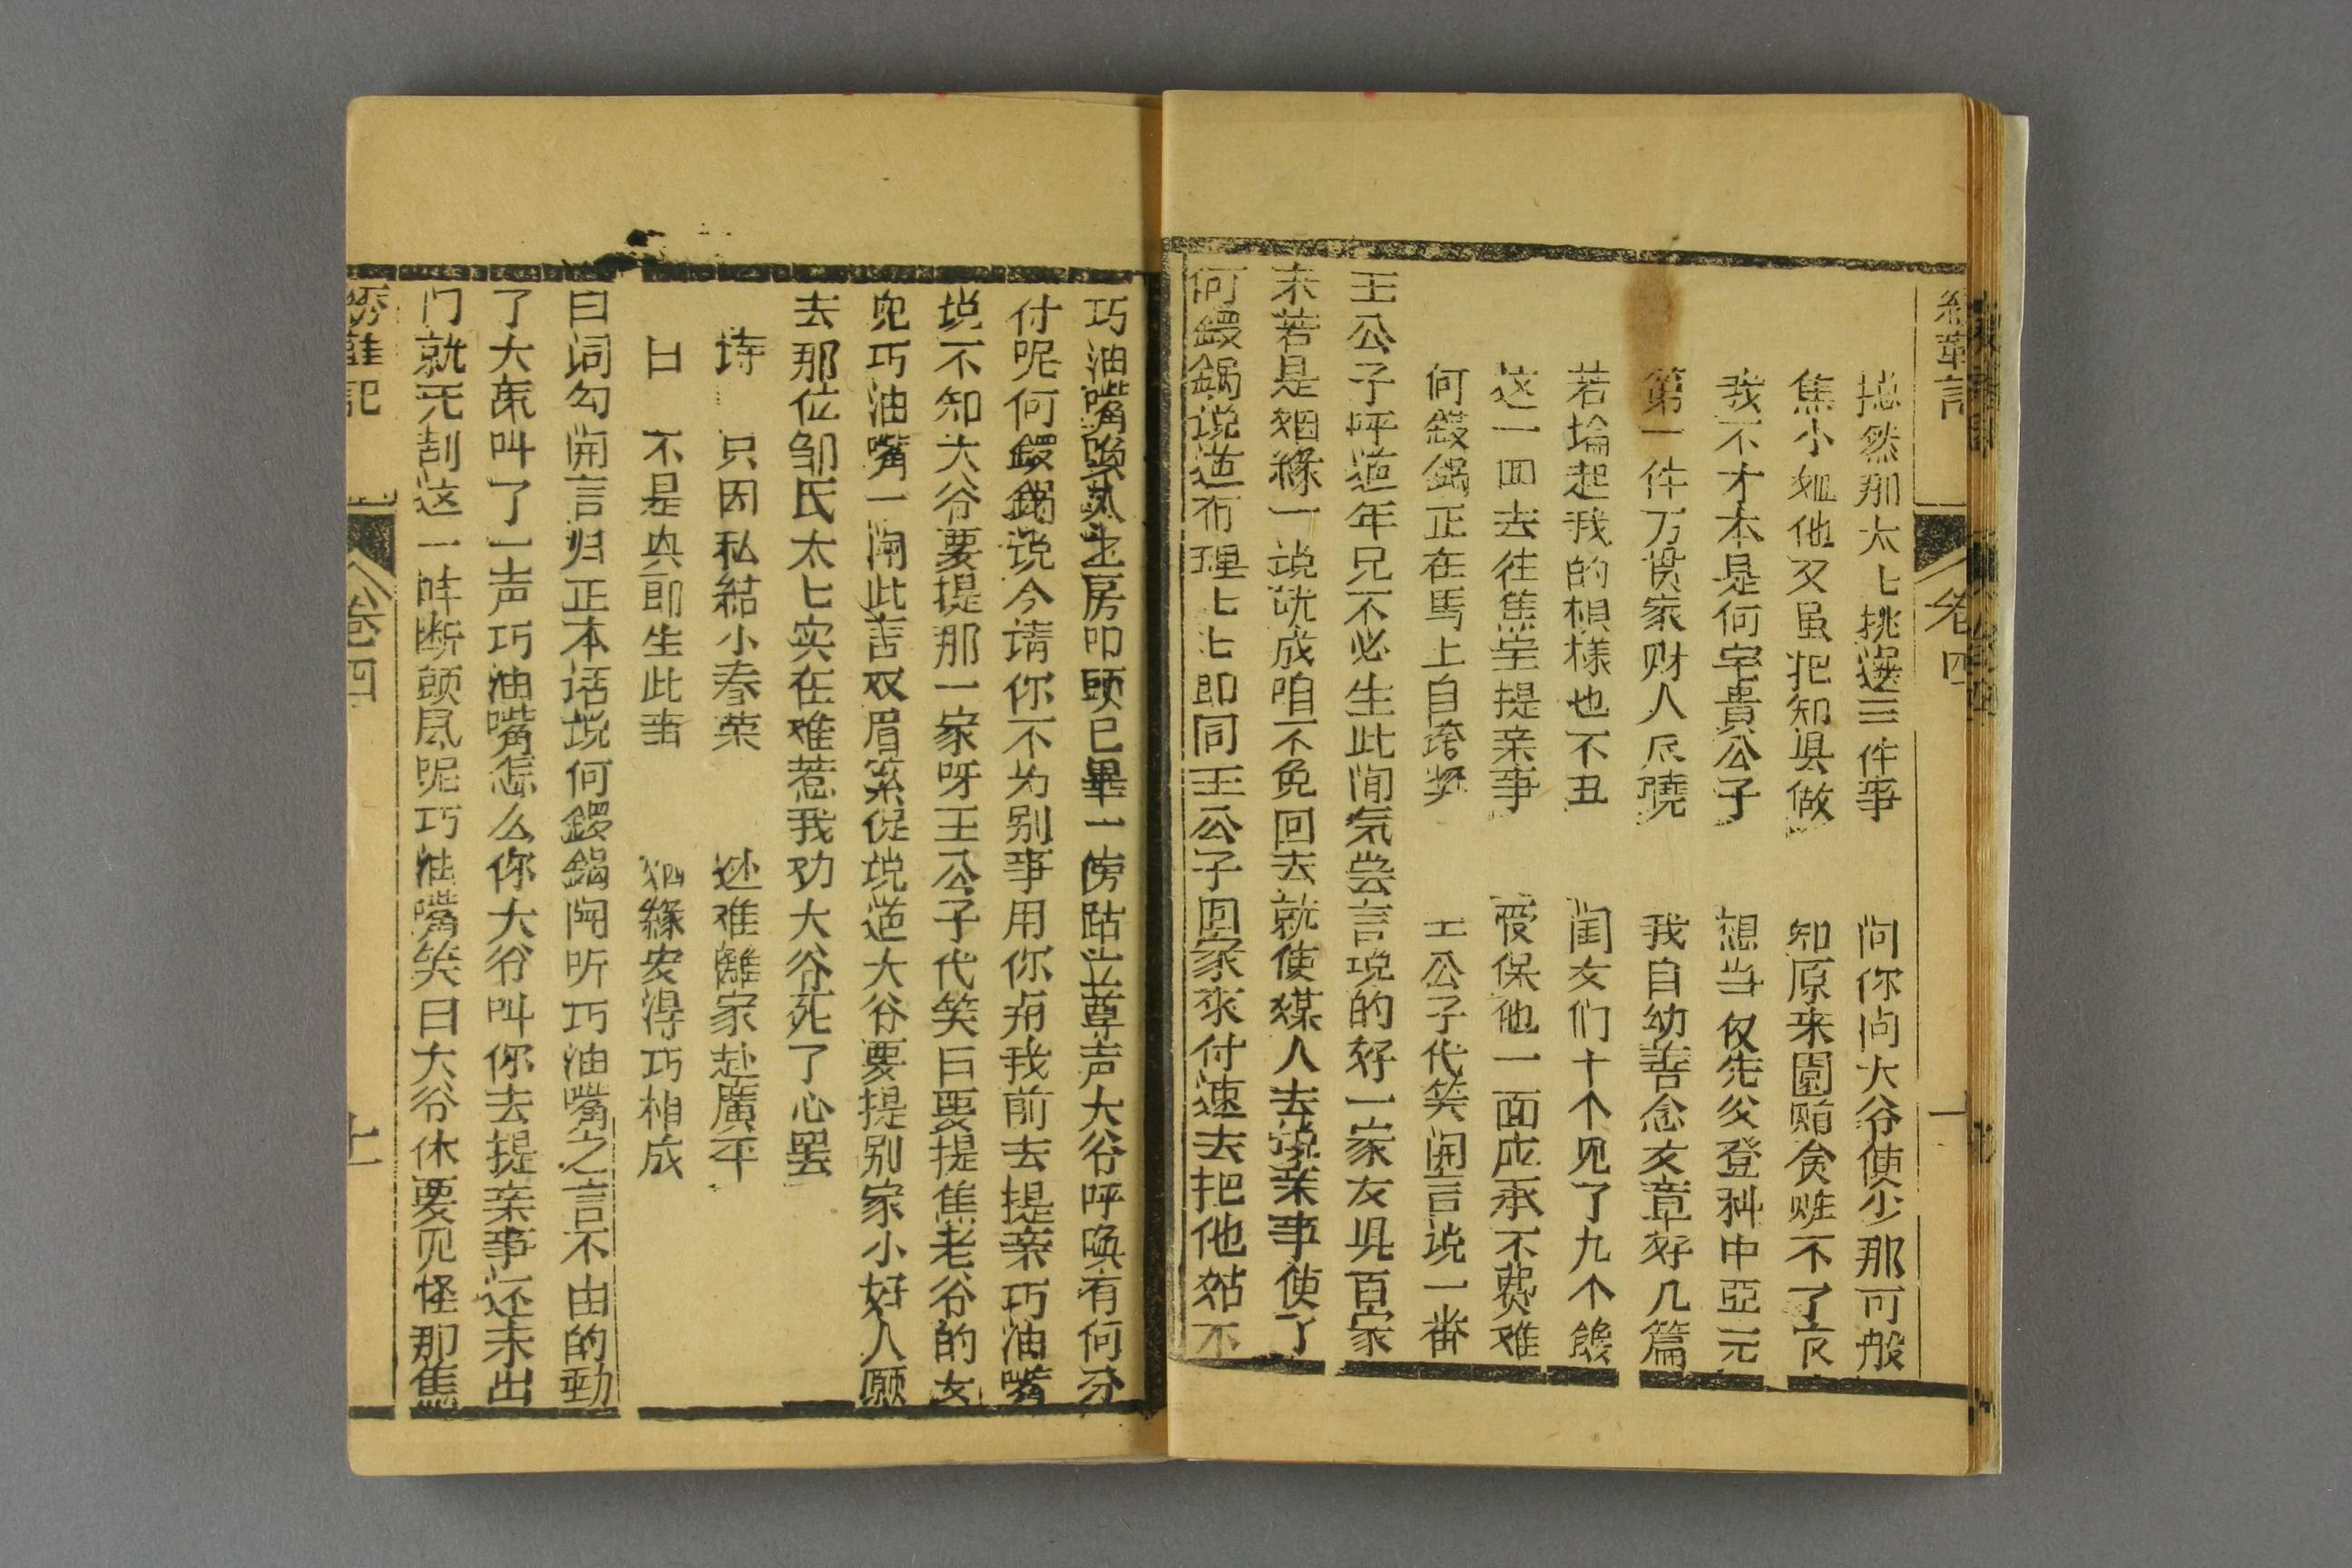 卷四
揌然那太匕挑選三件事 问你尙大爷使少那可般
焦小姐他又虽把知县做 知原来園贿貪赃不了
我不才本是何宅貴公子 想当仅先父登科中亞元
第一件万贯家财人尽曉 我自幼善念文章好几篇
若埨起我的模様也不丑 闺女们十个见了九个餞
这一回去往焦宅提亲事 受保他一面应承不费难
何鏝鍋正在馬上自誇奖 王公子代笑開言说一番
王公子呼道年兄不必生此闹気尝言说的好一家女児百家
未若是姻緣一说就成咱不免回去就使媒人去说亲事使了
何鏝鍋说道有理匕匕即同王公子回家來付速去把他姑不
巧油嘴唤入主房叩頭已畢一傍跕立尊声大爷呼唤有何分
付呢何鏝鍋说今请你不为别事用你与我前去提亲巧油嘴
说不知大爷要提那一家呀王公子代笑曰要提焦老爷的女
児巧油嘴一闻此言双眉紧促说道大爷要提别家小好人愿
去那位邹氏太匕实在难惹我劝大爷死了心罢
诗 只因私結小春荣 逃难離家赴廣平
曰 不是奂郎生此事 姻緣安得巧相成
白词勾開言归正本话说何鏝鍋闻听巧油嘴之言不由的動
了大怒叫了一声巧油嘴怎么你大爷叫你去提亲事还未出
门就先刮这一阵断頭風呢巧油嘴笑曰大爷休要见怪那焦
記
卷四